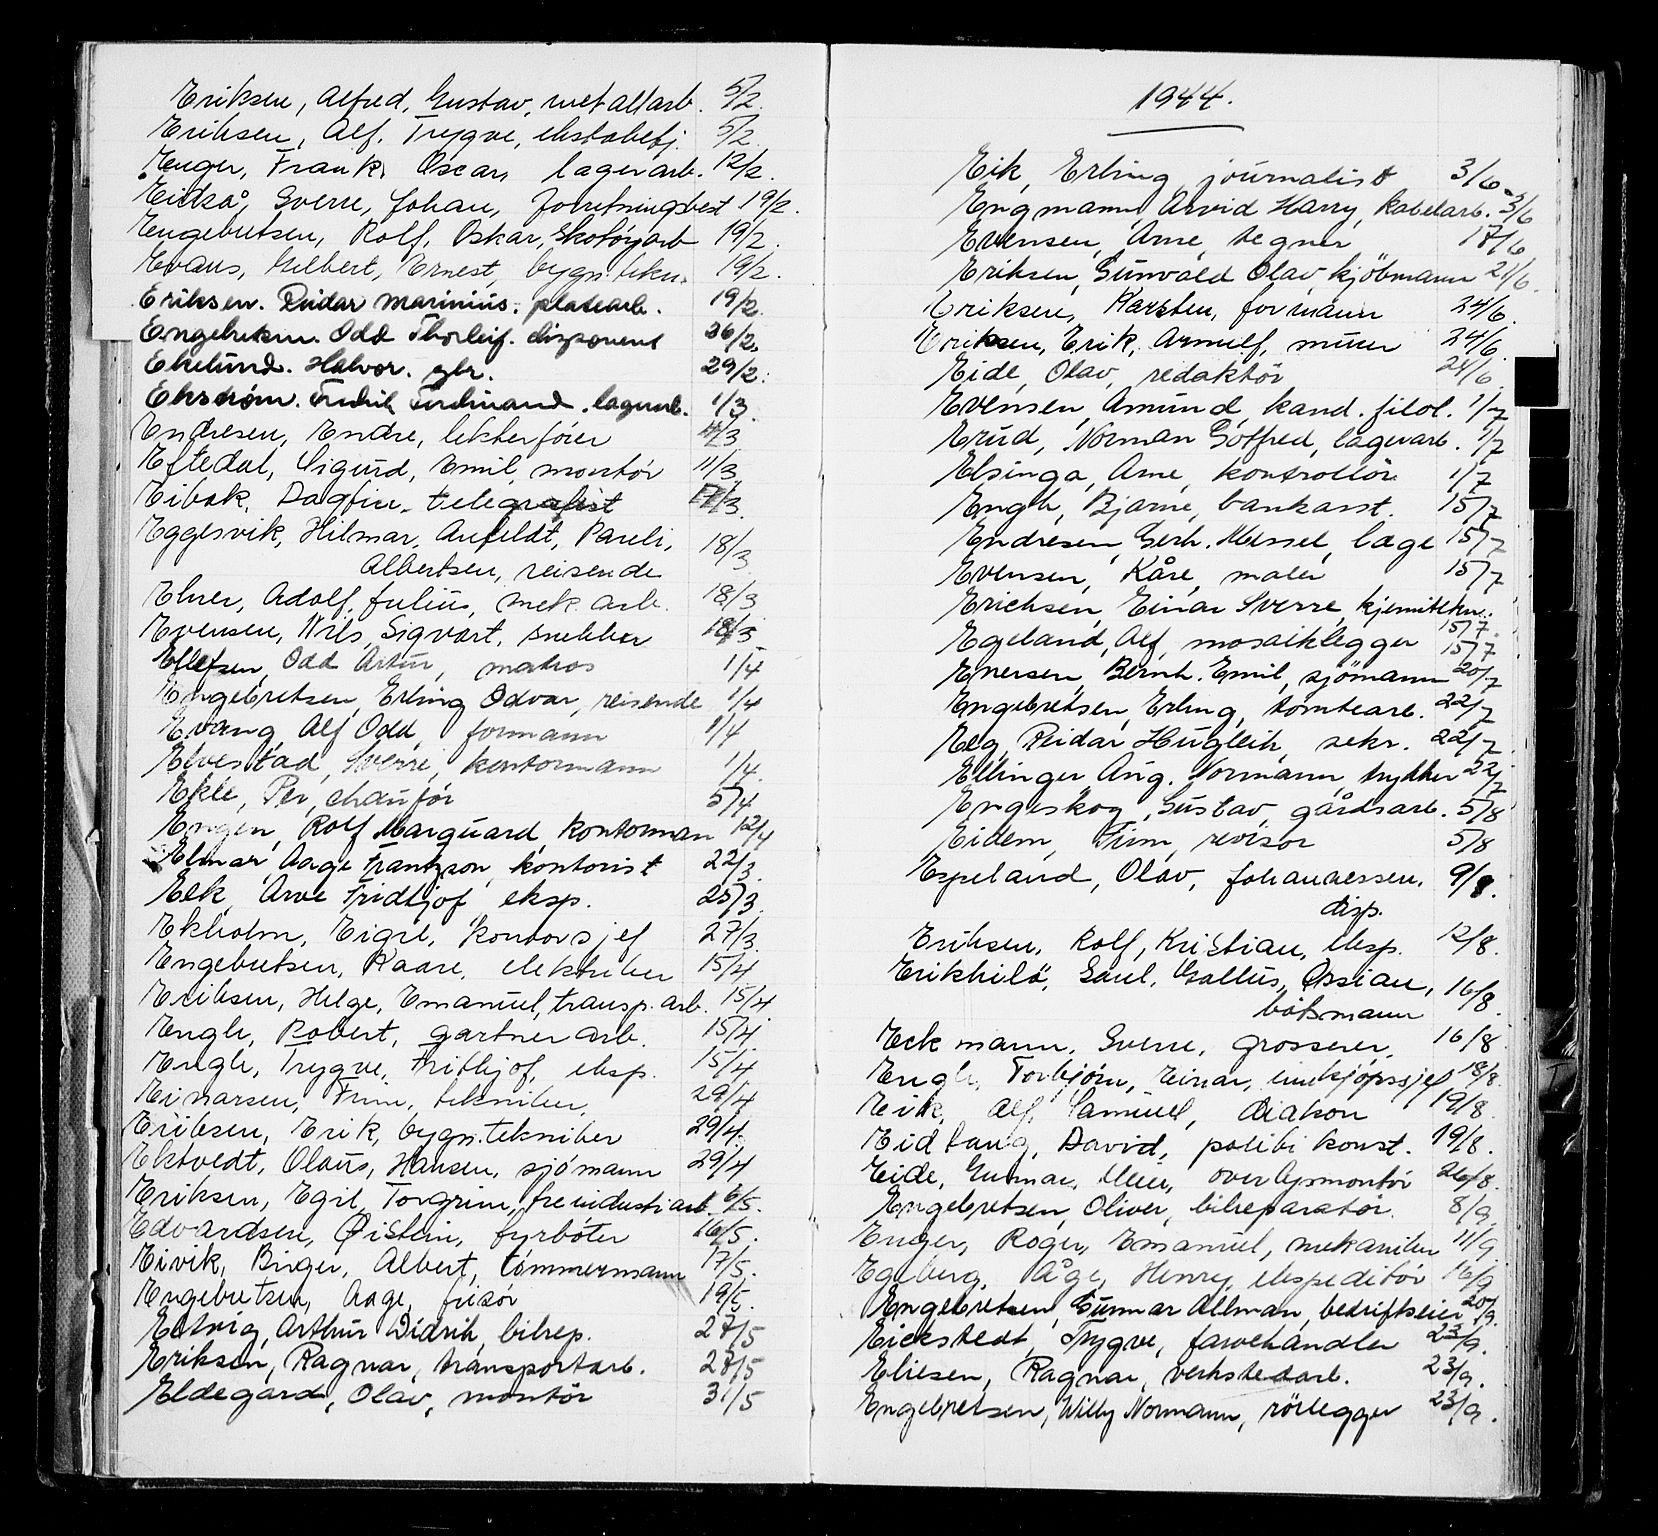 Eriksen, Alfred, Gustav, metallarb. 5/2.
Eriksen, Alf. Trygve, 5/2.
Enger, Frank, Oscar, lagerarb. 12/2.
Eidså, Sverre, Johan, forretningsbest 19/2.
Engebretsen, Rolf, Oskar, Skotøyarb 19/2.
Evans, Gilbert, Ernest, bygn. tekn. 19/2.
Eriksen. Reidar Marinius. platearb. 19/2.
Engebretsen. Odd Thorleif. disponent 26/2.
Ekelund. Halvor. gbr. 29/2.
Ekstrøm. Fredrik Ferdinand. lagerarb. 1/3.
Endresen, Endre, lekterfører 4/3
Eftedal, Sigurd, Emil, montør 11/3
Eibak, Dagfinn, telegrafist 17/3.
Eggesvik, Hilmar, Anfeldt, Pareli, 18/3
Albertsen, reisende
Elner, Adolf, Julius, mek. arb. 18/3
Evensen, Nils, Sigvart, snekker 18/3
Ellefsen, Odd Artur, matros 1/4
Engebretsen, Erling Odvar, reisende 1/4
Evang, Alf Odd, formann 1/4
Elvestad, Sverre, kontormann 1/4.
Ekle, Per, chauför 5/4
Engen, Rolf Marguard, kontorman 12/4
Elmar, Aage Frantzson, kontorist 22/3.
Eek, Arve Fridtjof, eksp. 25/3.
Ekholm, Eigil, kontorsjef 27/3.
Engebretsen, Kaare, elektriker 15/4
Eriksen, Helge, Emanuel, transp. arb. 15/4.
Engh, Robert, gartnerarb. 15/4.
Engh, Trygve, Frithjof, eksp. 15/4
Einarsen, Finn, tekniker, 29/4
Eriksen, Erik, bygn. tekniker 29/4.
Ektvedt, Olaus, Hansen, sjømann 29/4
Eriksen, Egil, Torgrim, 6/5.
Edvardsen, Øistein, fyrbøter 16/5.
Eivik, Birger, Albert, tømmermann 17/5.
Engebretsen, Aage, frisør 19/5.
Eltvig, Arthur Didrik, bilrep. 27/5
Eriksen, Ragnar, transportarb. 27/5
Eldegard, Olav, montør 31/5
1944.
Eik, Erling journalist 3/6.
Engmann, Arvid Harry, kabelarb. 3/6
Evensen, Arne, tegner 17/6
Eriksen, Gunvald Olav, kjöbmann 21/6.
Eriksen, Karsten, formann 24/6.
Eriksen, Erik, Arnulf, murer 24/6
Eide, Olav, redaktör 24/6.
Evensen, Amund, kand. filol. 1/7
Erud, Norman Gotfred, lagerarb. 1/7
Elsinga, Arne, kontrollör 1/7
Engh, Bjarne, bankasst. 15/7
Endresen, Gerh. Wessel, læge 15/7
Evensen, Kåre, maler 15/7
Erichsen, Einar Sverre, kjemitekn.
15/7.
Egeland, Alf, mosaiklegger 15/7
Enersen, Bernh. Emil, sjömann 20/7
Engebretsen, Erling, tomtearb. 22/7
Elg, Reidar Hugleik, sekr. 22/7
Ellinger, Aug. Normann, trykker 22/7
Engeskog, Gustav, gårdsarb. 5/8
Eidem, Finn, revisor 5/8
Espeland, Olav, Johannessen, 9/8.
disp.
Eriksen, Rolf, Kristian, eksp. 12/8.
Erikkilä, Saul, Gallus, Ossian, 16/8.
båtsmann
Eckmann, Sverre, grosserer, 16/8.
Engh, Torbjørn, Einar, innkjøpssjef 18/8
Eik, Alf, Samuel, diakon 19/8.
Eidtang, David, politi konst. 19/8.
Eide, Gunnar, overlysmontør 26/8.
Engebretsen, Oliver, bilreparatør. 8/9.
Enger, Roger, Emanuel, mekaniker 11/9
Egeberg, Åge, Henry, ekspeditør 16/9
Engebretsen, Gunnar Allman, bedriftseier 20/9.
Eickstedt, Trygve, farvehandler 23/9.
Eliesen, Ragnar, verkstedarb. 23/9.
Engebretsen, Willy Normann, rörlegger 23/9.